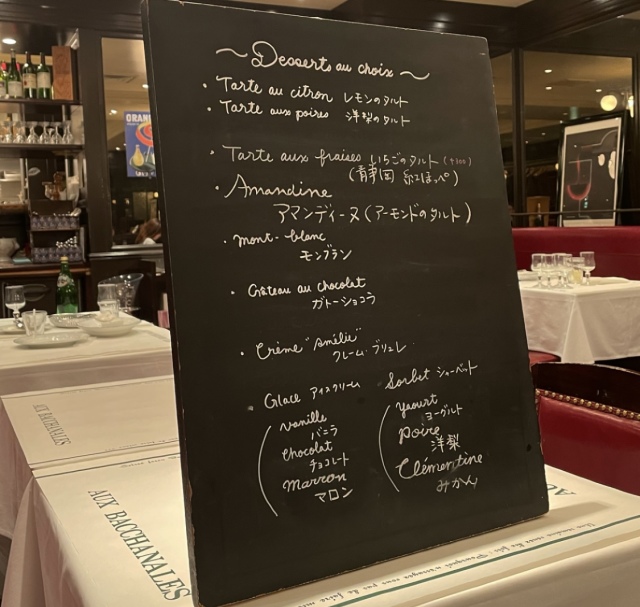 ~Desserts au choix~
・Tarte au citron レモンのタルト
・Tarte aux poires 洋梨のタルト
・Tarte aux fraises いちごのタルト
(静岡 紅ほっぺ)
・Amandine
アマンディーヌ(アーモンドのタルト)
・mont-blanc
モンブラン
・Gâteau au chocolat
ガトーショコラ
・Crème "Amélie"
クレーム・ブリュレ
・Glace アイスクリーム
Vanille
バニラ
Chocolat
チョコレート
Marron
マロン
Sorbet シャーベット
yaourt
ヨーグルト
poire
洋梨
Clémentine
みかん
AUX BACCHANALES
AUX BACCHANALES